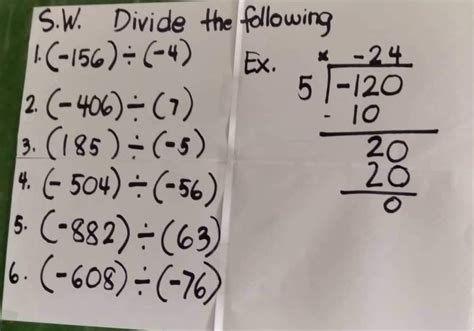 S.W. Divide the following
1. (-156) ÷ (-4)
2. (-406) ÷ (7)
3. (185) ÷ (-5)
4. (-504) ÷ (-56)
5. (-882) ÷ (63)
6. (-608) ÷ (-76)
Ex. x -24
5 -120
- 10
20
20
0